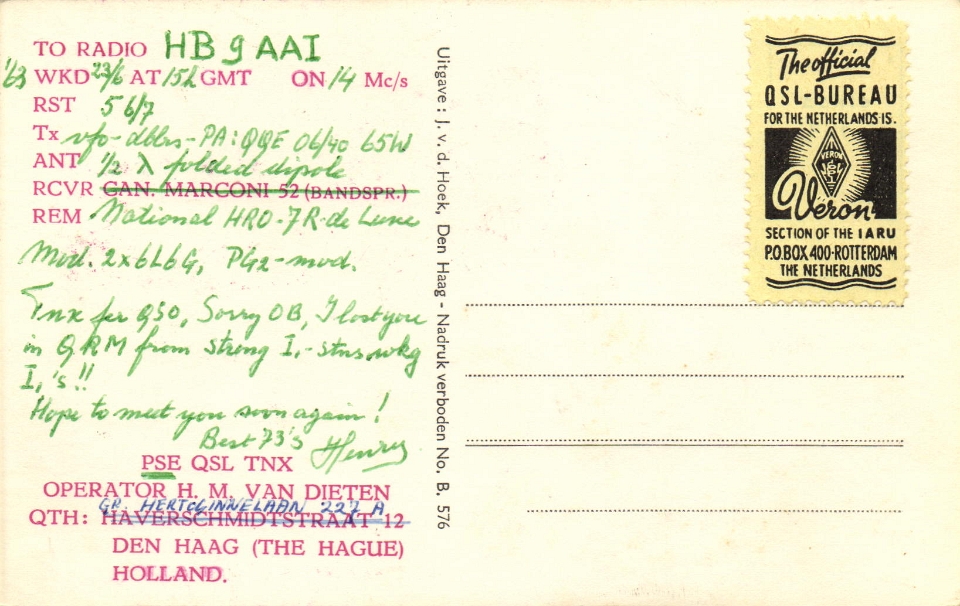 TO RADIO HB9AAI
'63 WKD 23/6 AT 15h GMT ON 14 Mc/s
RST 56/7
Tx vfo-dblrs-PA:QQE 06/40 65W
ANT 1/2 λ folded dipole
RCVR CAN. MARCONI 52 (BANDSPR.)
REM National HRO-7R-de Luxe
Mod. 2x6L6G, PG2-mod.
Tnx fer QSO, Sorry OB, I lost you
in QRM from strong I,-stns, wkg
I,'s!!
Hope to meet you soon again!
Best 73's Henry
PSE QSL TNX
OPERATOR H. M. VAN DIETEN
GR. HERTOGINNELAAN 227 A
QTH: HAVERSCHMIDTSTRAAT 12
DEN HAAG (THE HAGUE)
HOLLAND.
Uitgave: J. v. d. Hoek, Den Haag - Nadruk verboden No. B. 576
The official
QSL-BUREAU
FOR THE NETHERLANDS IS.
VERON
Veron
SECTION OF THE IARU
P.O.BOX 400·ROTTERDAM
THE NETHERLANDS